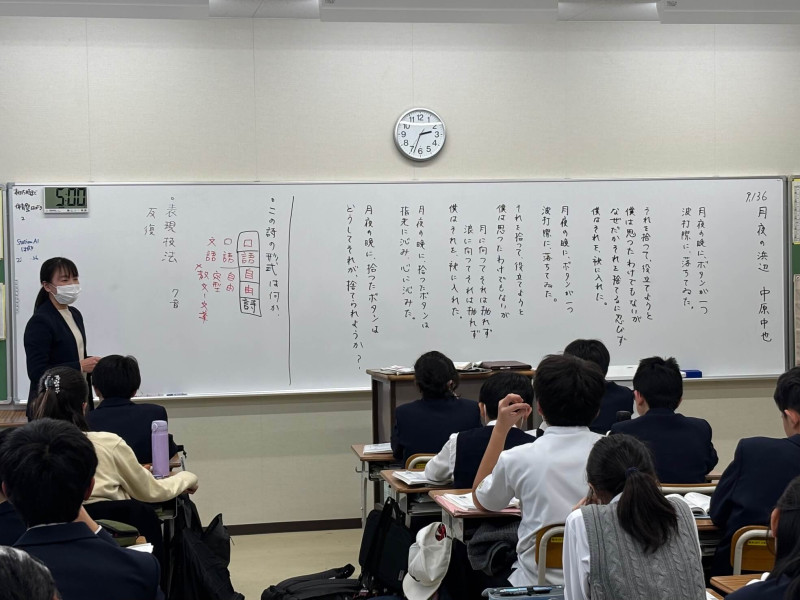 P.136
月夜の浜辺　中原中也
月夜の晩に、ボタンが一つ
波打際に、落ちてゐた。
それを拾って、役立てようと
僕は思つたわけでもないが
なぜだかそれを捨てるに忍びず
僕はそれを、袂に入れた。
月夜の晩に、ボタンが一つ
波打際に、落ちてゐた。
それを拾って、役立てようと
僕は思つたわけでもないが
月に向つてそれは抛れず
浪に向つてそれは抛れず
僕はそれを、袂に入れた。
月夜の晩に、拾つたボタンは
指先に沁み、心に沁みた。
月夜の晩に、拾つたボタンは
どうしてそれが、捨てられようか？
この詩の形式は何か。
口語自由詩
口語　自由
文語　定型
散文
表現技法　7音
反復
5:00
Station AI
12
1
2
3
4
5
6
7
8
9
10
11